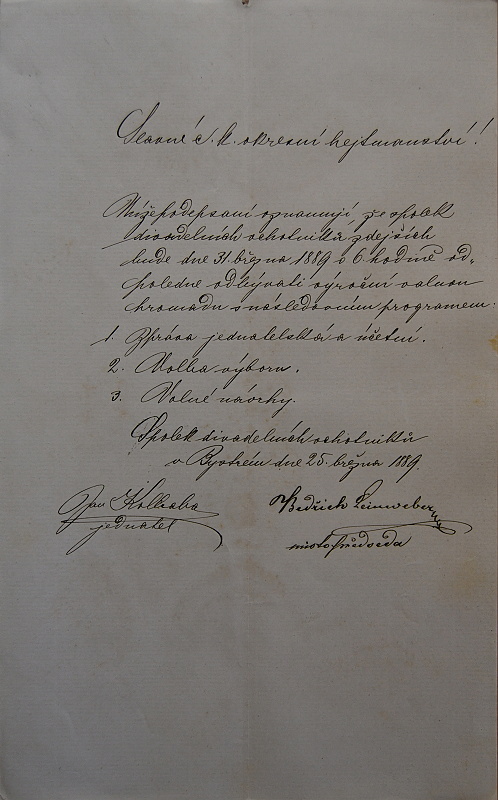 Slavné c. k. okresní hejtmanství!
Nížepodepsaní oznamují, že spolek
divadelních ochotníků zdejších
bude dne 31. března 1889 o 6. hodině od-
poledne odbývati výroční valnou
hromadu s následovním programem:
1. Zpráva jednatelská a účetní.
2. Volba výboru.
3. Volné návrhy.
Spolek divadelních ochotníků
v Bystrém dne 25. března 1889.
Jan
Bedřich Leinweber
jednatel
místopředseda